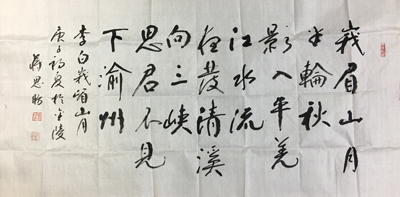 峨眉山月
半輪秋
影入平羌
江水流
夜發清溪
向三峽
思君不見
下渝州
李白峨嵋山月
庚子初夏於金陵